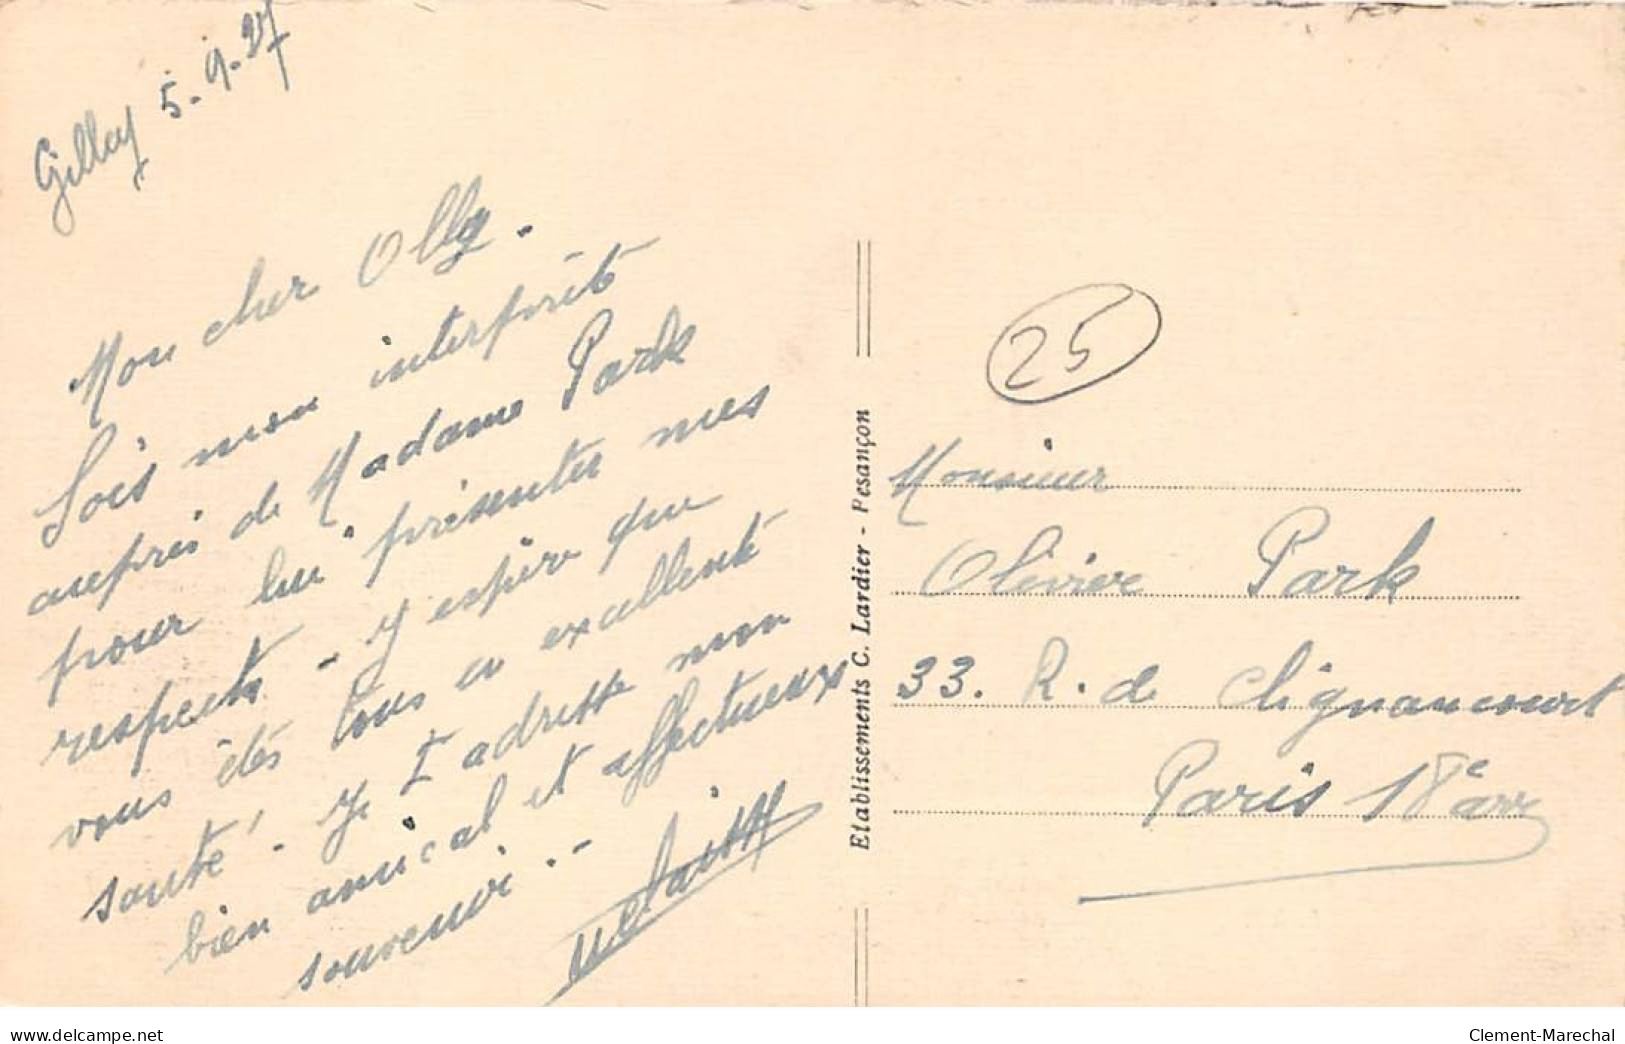 Gilley 5-9-27
Mon cher Olly.
Sois mon interprète
auprès de Madame Park
pour lui présenter mes
respects - J'espère que
vous êtes tous en excellente
santé - Je t'adresse mon
bien amical et affectueux
souvenir.-
Etablissements C. Lardier - Pesançon
25
Monsieur
Olivier Park
33. R. de Clignancourt
Paris 18e arr
delcampe.net
Clement-Marechal